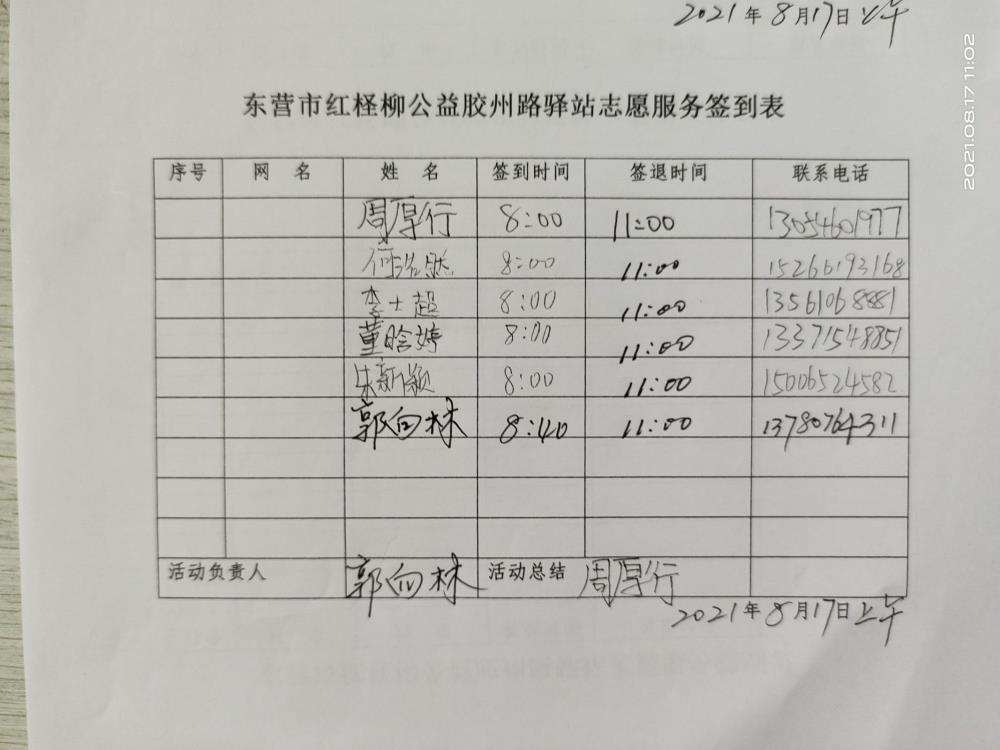 2021年8月17日上午
2021.08.17 11:02
东营市红柽柳公益胶州路驿站志愿服务签到表
序号 网 名 姓 名 签到时间 签退时间 联系电话
周厚行 8:00 11:00 13054601977
8:00 11:00 15266193168
李士超 8:00 11:00 13561068881
董晗婷 8:00 11:00 13371548851
朱新颖 8:00 11:00 15006524582
郭向林 8:40 11:00 13780764311
活动负责人 郭向林 活动总结 周厚行
2021年8月17日上午